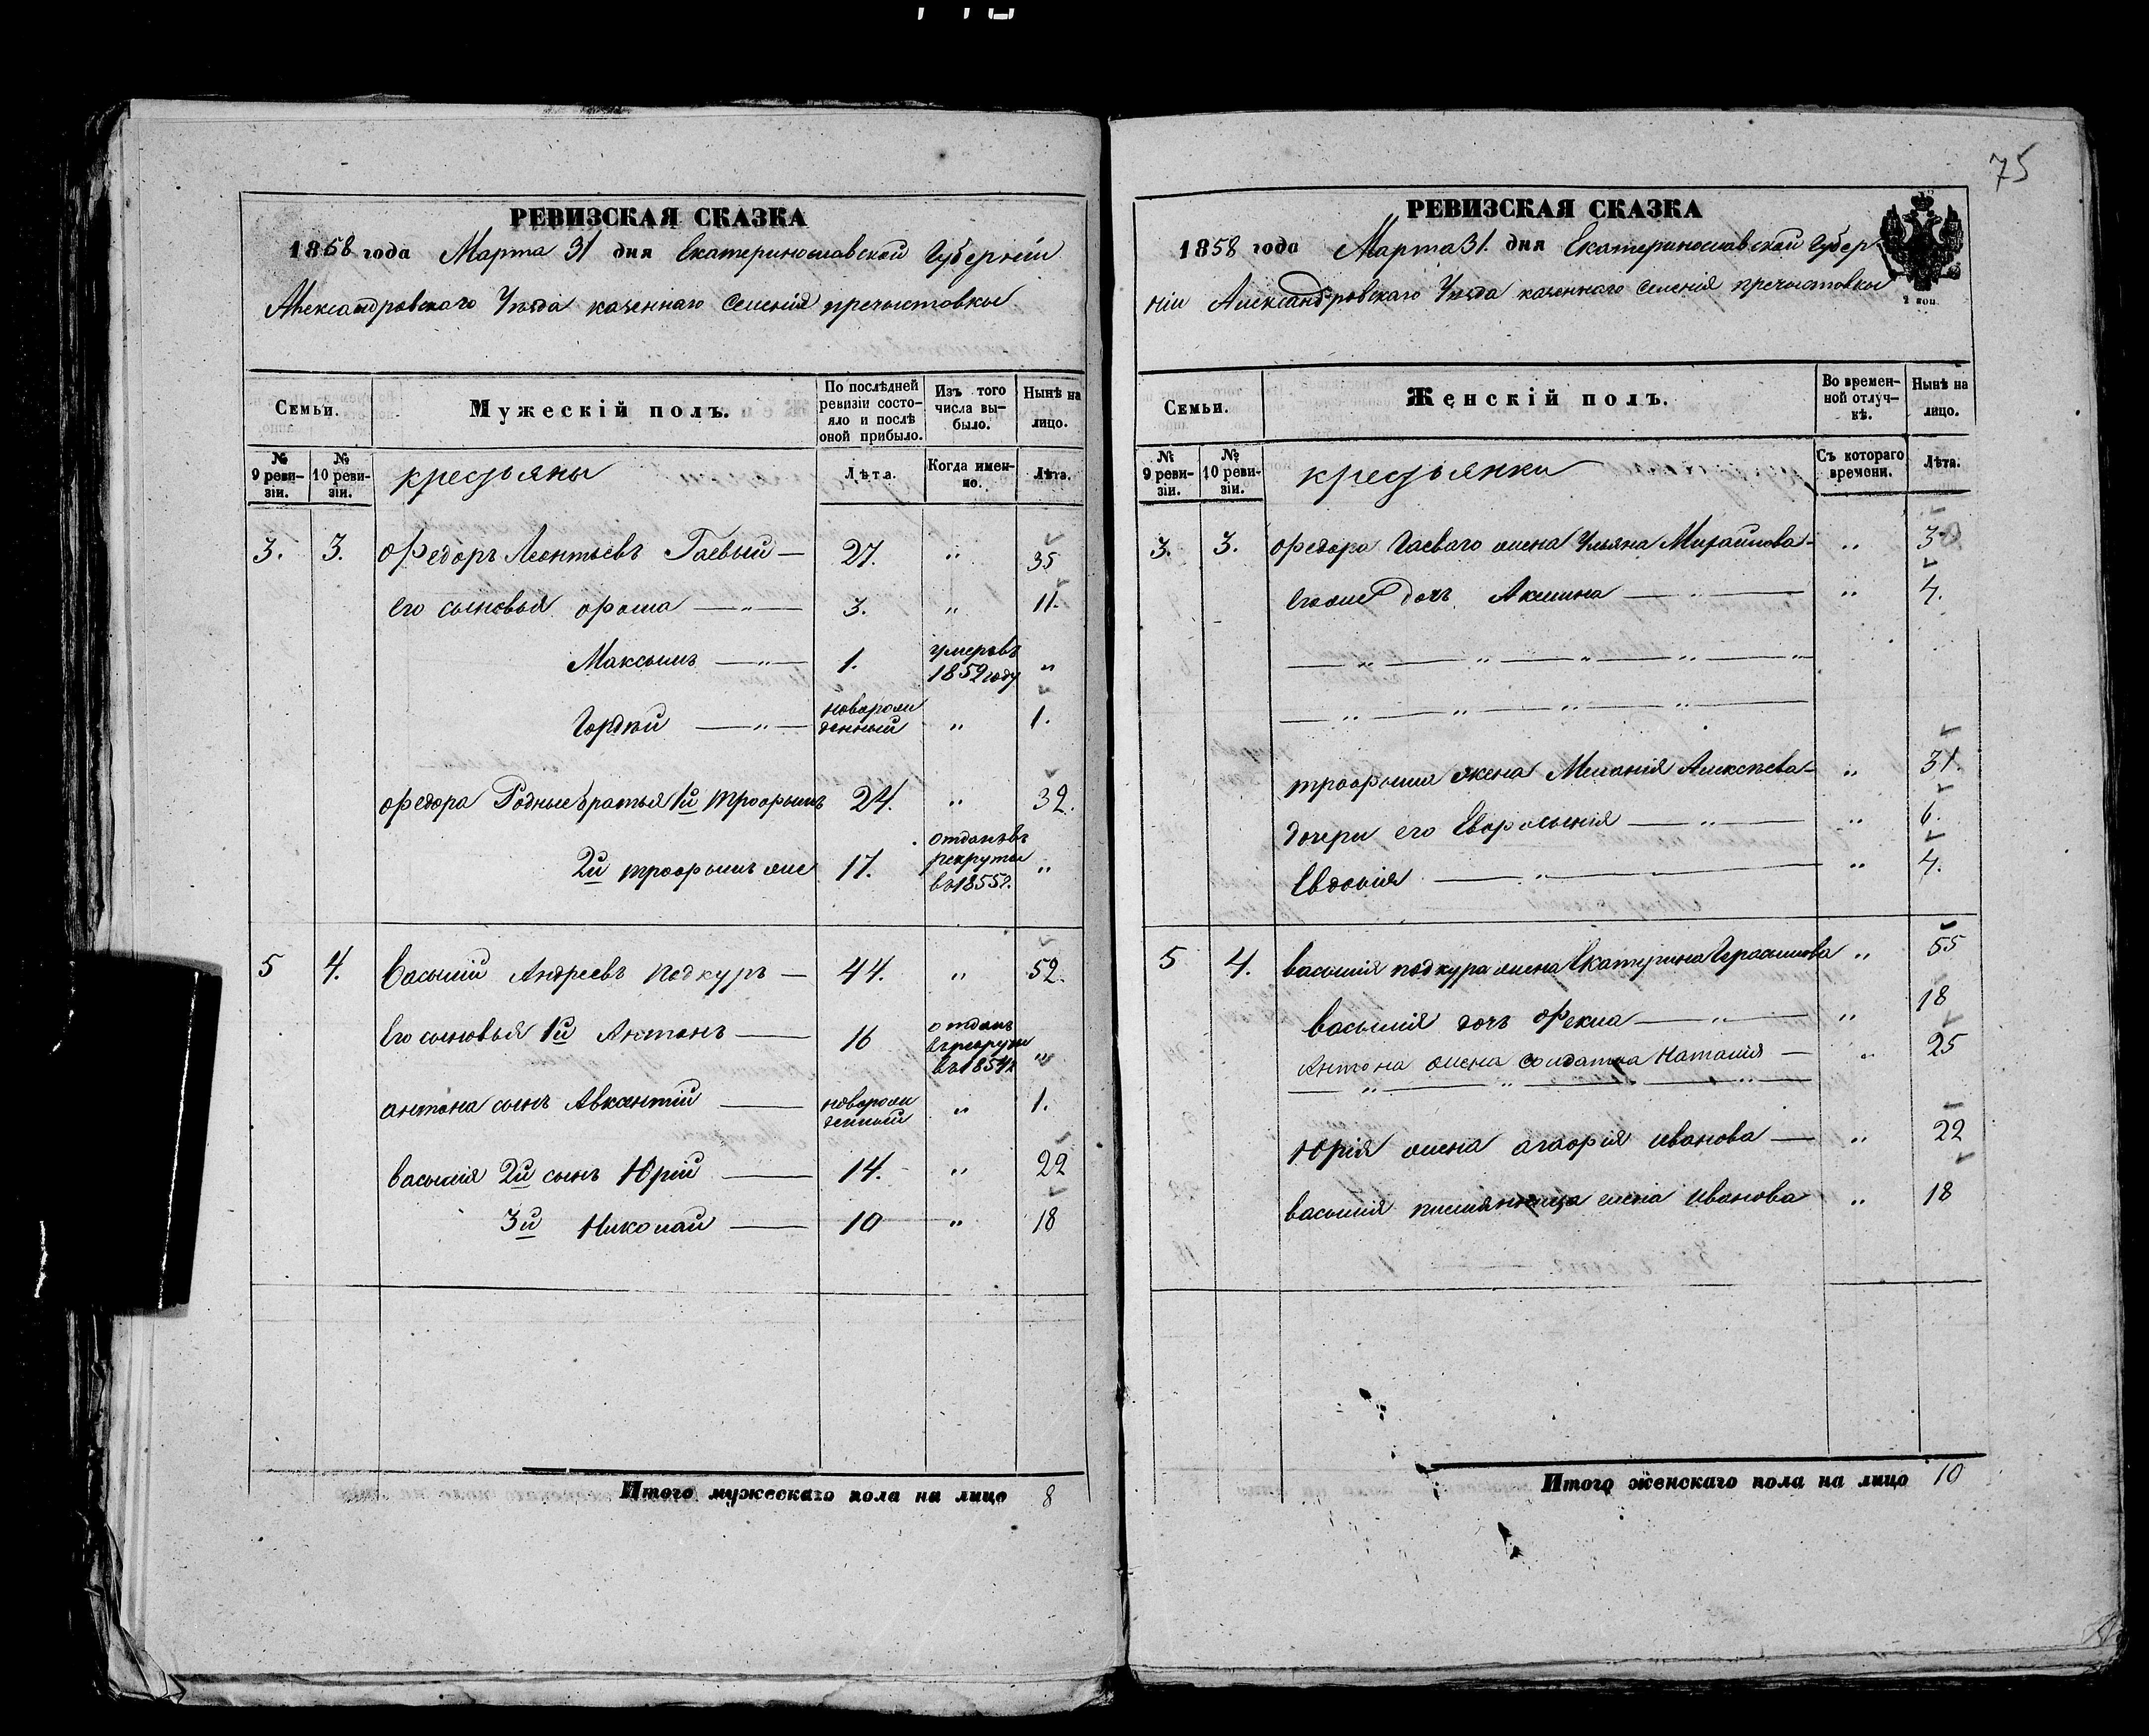 75
РЕВИЗСКАЯ СКАЗКА
1858 года Марта 31 дня Екатеринославской Губерніи
Александровскаго Уѣзда казеннаго Селенія пречыстовкы
Семьи.
Мужескій полъ.
По послѣдней ревизіи состояло и послѣ оной прибыло.
Изъ того числа выбыло.
Нынѣ на лицо.
№ 9 ревизіи.
№ 10 ревизіи.
крестьяны
Лѣта.
Когда именно.
Лѣта.
3. 3. Федоръ Леонтьевъ Гаевый — 27. „ 35
его сыновья фома — „ — 3. „ 11.
Максымъ — „ — 1. умеръвъ 1852 году „
Гордѣй — „ — новорожденный „ 1.
федора Родные братья 1й трофымъ 24. „ 32.
2й трофымъ же 17. отданъвъ рекруты въ 1855г. „
5 4. Василій Андреевъ подкуръ — 44. „ 52.
Его сыновья 1й Антонъ — 16 отданъ въ рекруты въ 1854г „
антона сынъ Авксентій — новорожденный „ 1.
василія 2й сынъ Юрій — 14. „ 22
3й Николай — 10 „ 18
Итого мужескаго пола на лицо 8
РЕВИЗСКАЯ СКАЗКА
1858 года Марта 31. дня Екатеринославской Губерніи
Александровскаго Уѣзда казеннаго селенія пречыстовкы
2 коп.
Семьи.
Женскій полъ.
Во временной отлучкѣ.
Нынѣ на лицо.
№ 9 ревизіи.
№ 10 ревизіи.
крестьянки
Съ котораго времени.
Лѣта.
3. 3. федора гаеваго жена Ульяна Михайлова — „
егоже дочь Акилина — „ — „ 4.
— „ — „ — „ — „ — „
— „ — „ — „ — „ —
трофыма жена Меланія Алексѣева — „ 31.
дочери его Евфросынія — „ — „ 6.
Евдокія — „ — „ 4.
5 4. василія подкура жена Екатерина Герасымова „ 55
василія дочъ Фекла — „ — „ 18
Антона жена солдатка Наталія — „ 25
— „ — „ — „ — „ —
Юрія жена агафія иванова — „ 22
василія племянница елена иванова „ 18
Итого женскаго пола на лицо 10